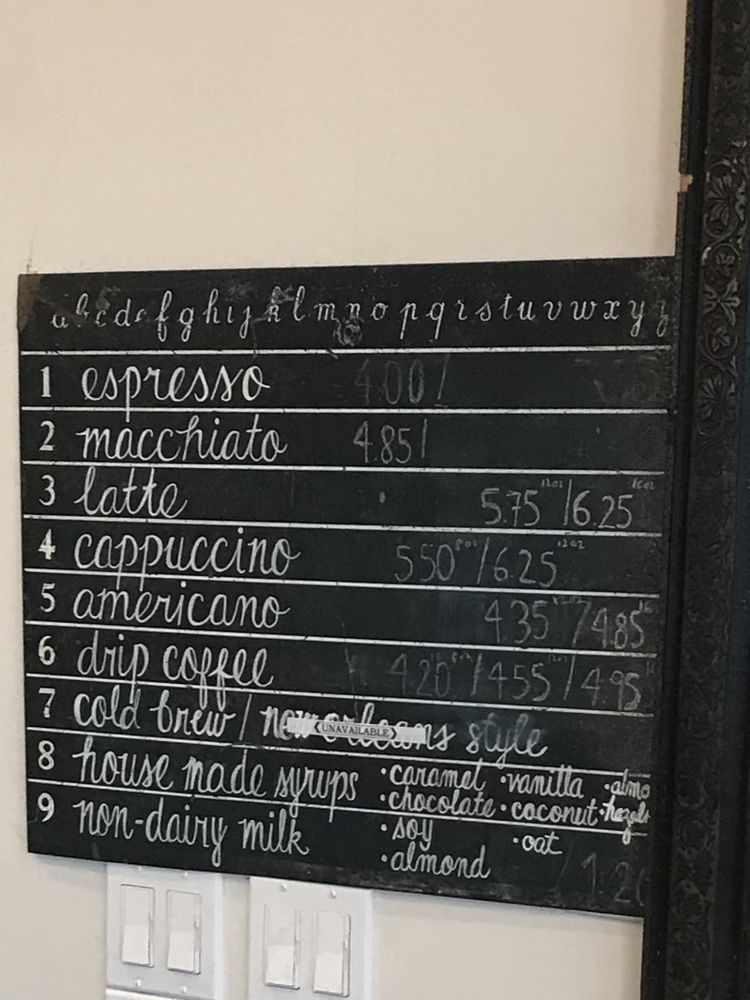 a b c d e f g h i j k l m n o p q r s t u v w x y z
1 espresso 4.00/
2 macchiato 4.85/
3 latte 5.75 12oz /6.25 16oz
4 cappuccino 5.50 8oz /6.25 12oz
5 americano 4.35 12oz /4.85 16
6 drip coffee 4.20 8oz /4.55 12oz /4.95
7 cold brew / new orleans style
UNAVAILABLE
8 house made syrups •caramel •vanilla •almo
•chocolate •coconut •hazel
9 non-dairy milk •soy •oat
•almond /1.20